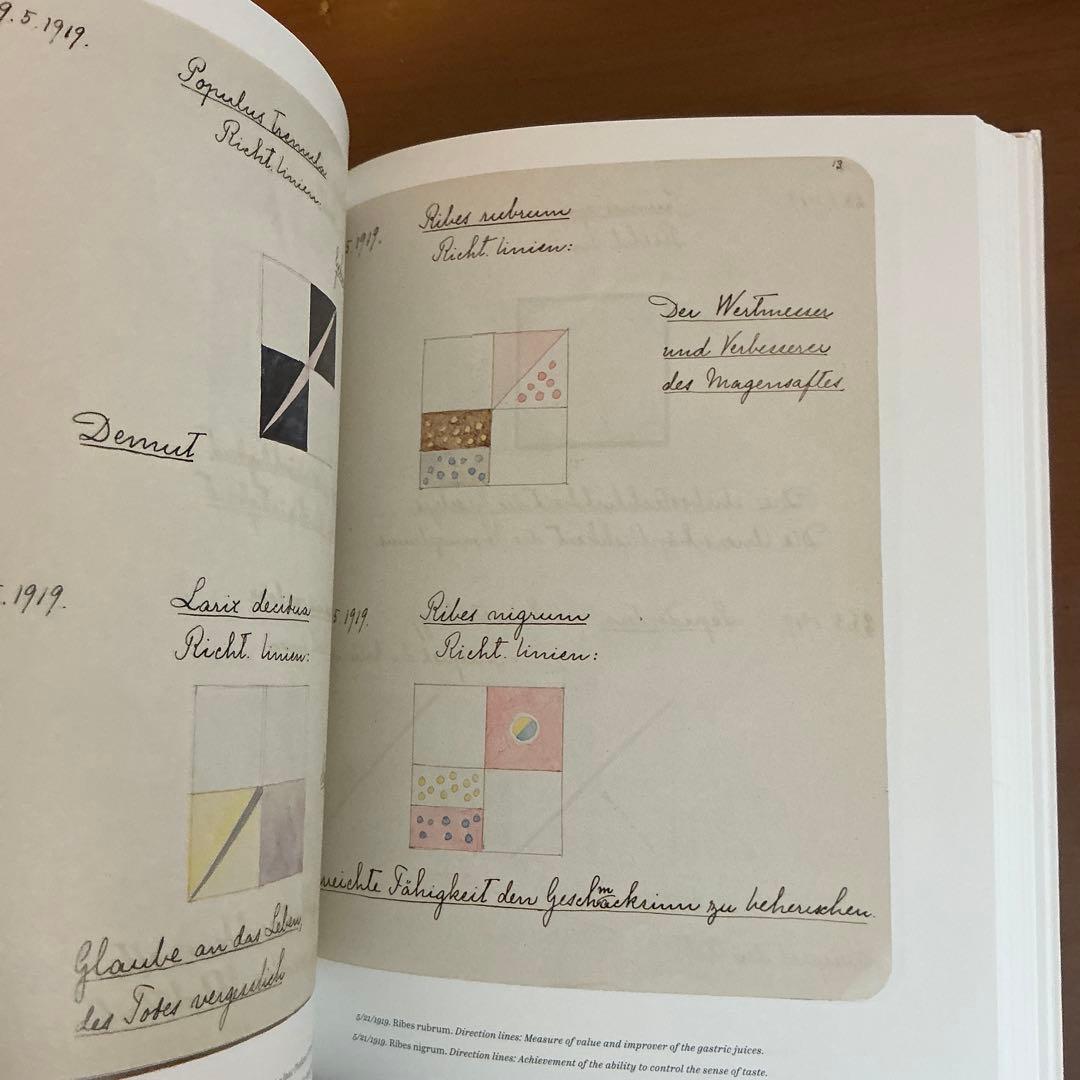 9.5.1919.
Populus tremula
Richt. linien
Demut
.1919.
Larix decidua
Richt. linien:
Glaube an das Leben,
des Todes vergesslich
13
5.1919.
Ribes rubrum
Richt. linien:
Der Wertmesser
und Verbesserer
des Magensaftes
5.1919.
Ribes nigrum
Richt. linien:
reichte Fähigkeit den Geschmacksinn zu beherrschen.
5/21/1919. Ribes rubrum. Direction lines: Measure of value and improver of the gastric juices.
5/21/1919. Ribes nigrum. Direction lines: Achievement of the ability to control the sense of taste.